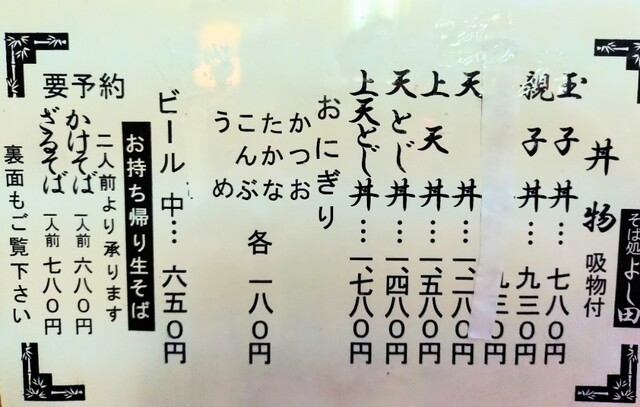 そば処 よし田
丼物 吸物付
玉子丼… 七八〇円
親子丼… 九三〇円
九三〇円
天丼… 一、二八〇円
上天丼… 一、五八〇円
天とじ丼… 一、四八〇円
上天とじ丼… 一、七八〇円
おにぎり
かつお
たかな
こんぶ
うめ
各 一八〇円
ビール 中… 六五〇円
お持ち帰り生そば
要予約 二人前より承ります
かけそば 一人前 六八〇円
ざるそば 一人前 七八〇円
裏面もご覧下さい